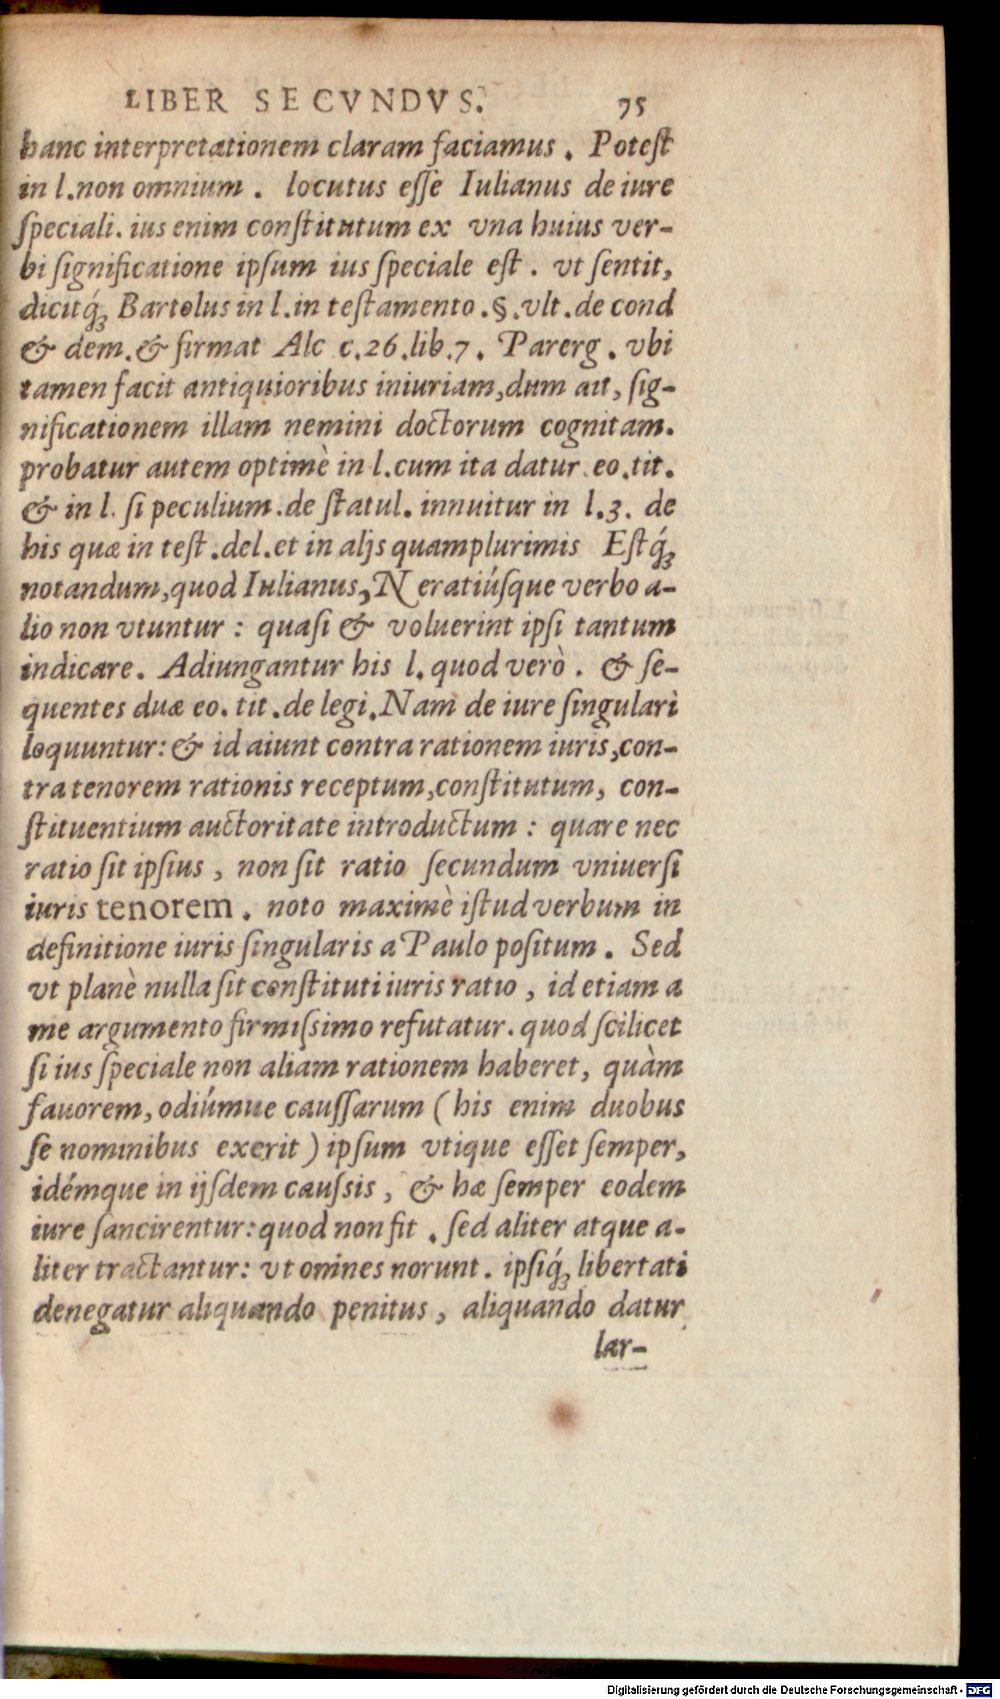 LIBER SECVNDVS. 75
hanc interpretationem claram faciamus. Potest
in l. non omnium. locutus esse Iulianus de iure
speciali. ius enim constitutum ex vna huius ver-
bi significatione ipsum ius speciale est. vt sentit,
dicitq́; Bartolus in l. in testamento. §. vlt. de cond
& dem. & firmat Alc c. 26. lib. 7. Parerg. vbi
tamen facit antiquioribus iniuriam, dum ait, sig-
nificationem illam nemini doctorum cognitam.
probatur autem optimè in l. cum ita datur. eo. tit.
& in l. si peculium. de statul. innuitur in l. 3. de
his quæ in test. del. et in alijs quamplurimis Estq́;
notandum, quod Iulianus, Neratiúsque verbo a-
lio non vtuntur: quasi & voluerint ipsi tantum
indicare. Adiungantur his l. quod verò. & se-
quentes duæ eo. tit. de legi. Nam de iure singulari
loquuntur: & id aiunt contra rationem iuris, con-
tra tenorem rationis receptum, constitutum, con-
stituentium auctoritate introductum: quare nec
ratio sit ipsius, non sit ratio secundum vniuersi
iuris tenorem. noto maximè istud verbum in
definitione iuris singularis a Paulo positum. Sed
vt planè nulla sit constituti iuris ratio, id etiam a
me argumento firmissimo refutatur. quod scilicet
si ius speciale non aliam rationem haberet, quàm
fauorem, odiúmue caussarum (his enim duobus
se nominibus exerit) ipsum vtique esset semper,
idémque in ijsdem caussis, & hæ semper eodem
iure sancirentur: quod non fit. sed aliter atque a-
liter tractantur: vt omnes norunt. ipsiq́; libertati
denegatur aliquando penitus, aliquando datur
lar-
Digitalisierung gefördert durch die Deutsche Forschungsgemeinschaft - DFG